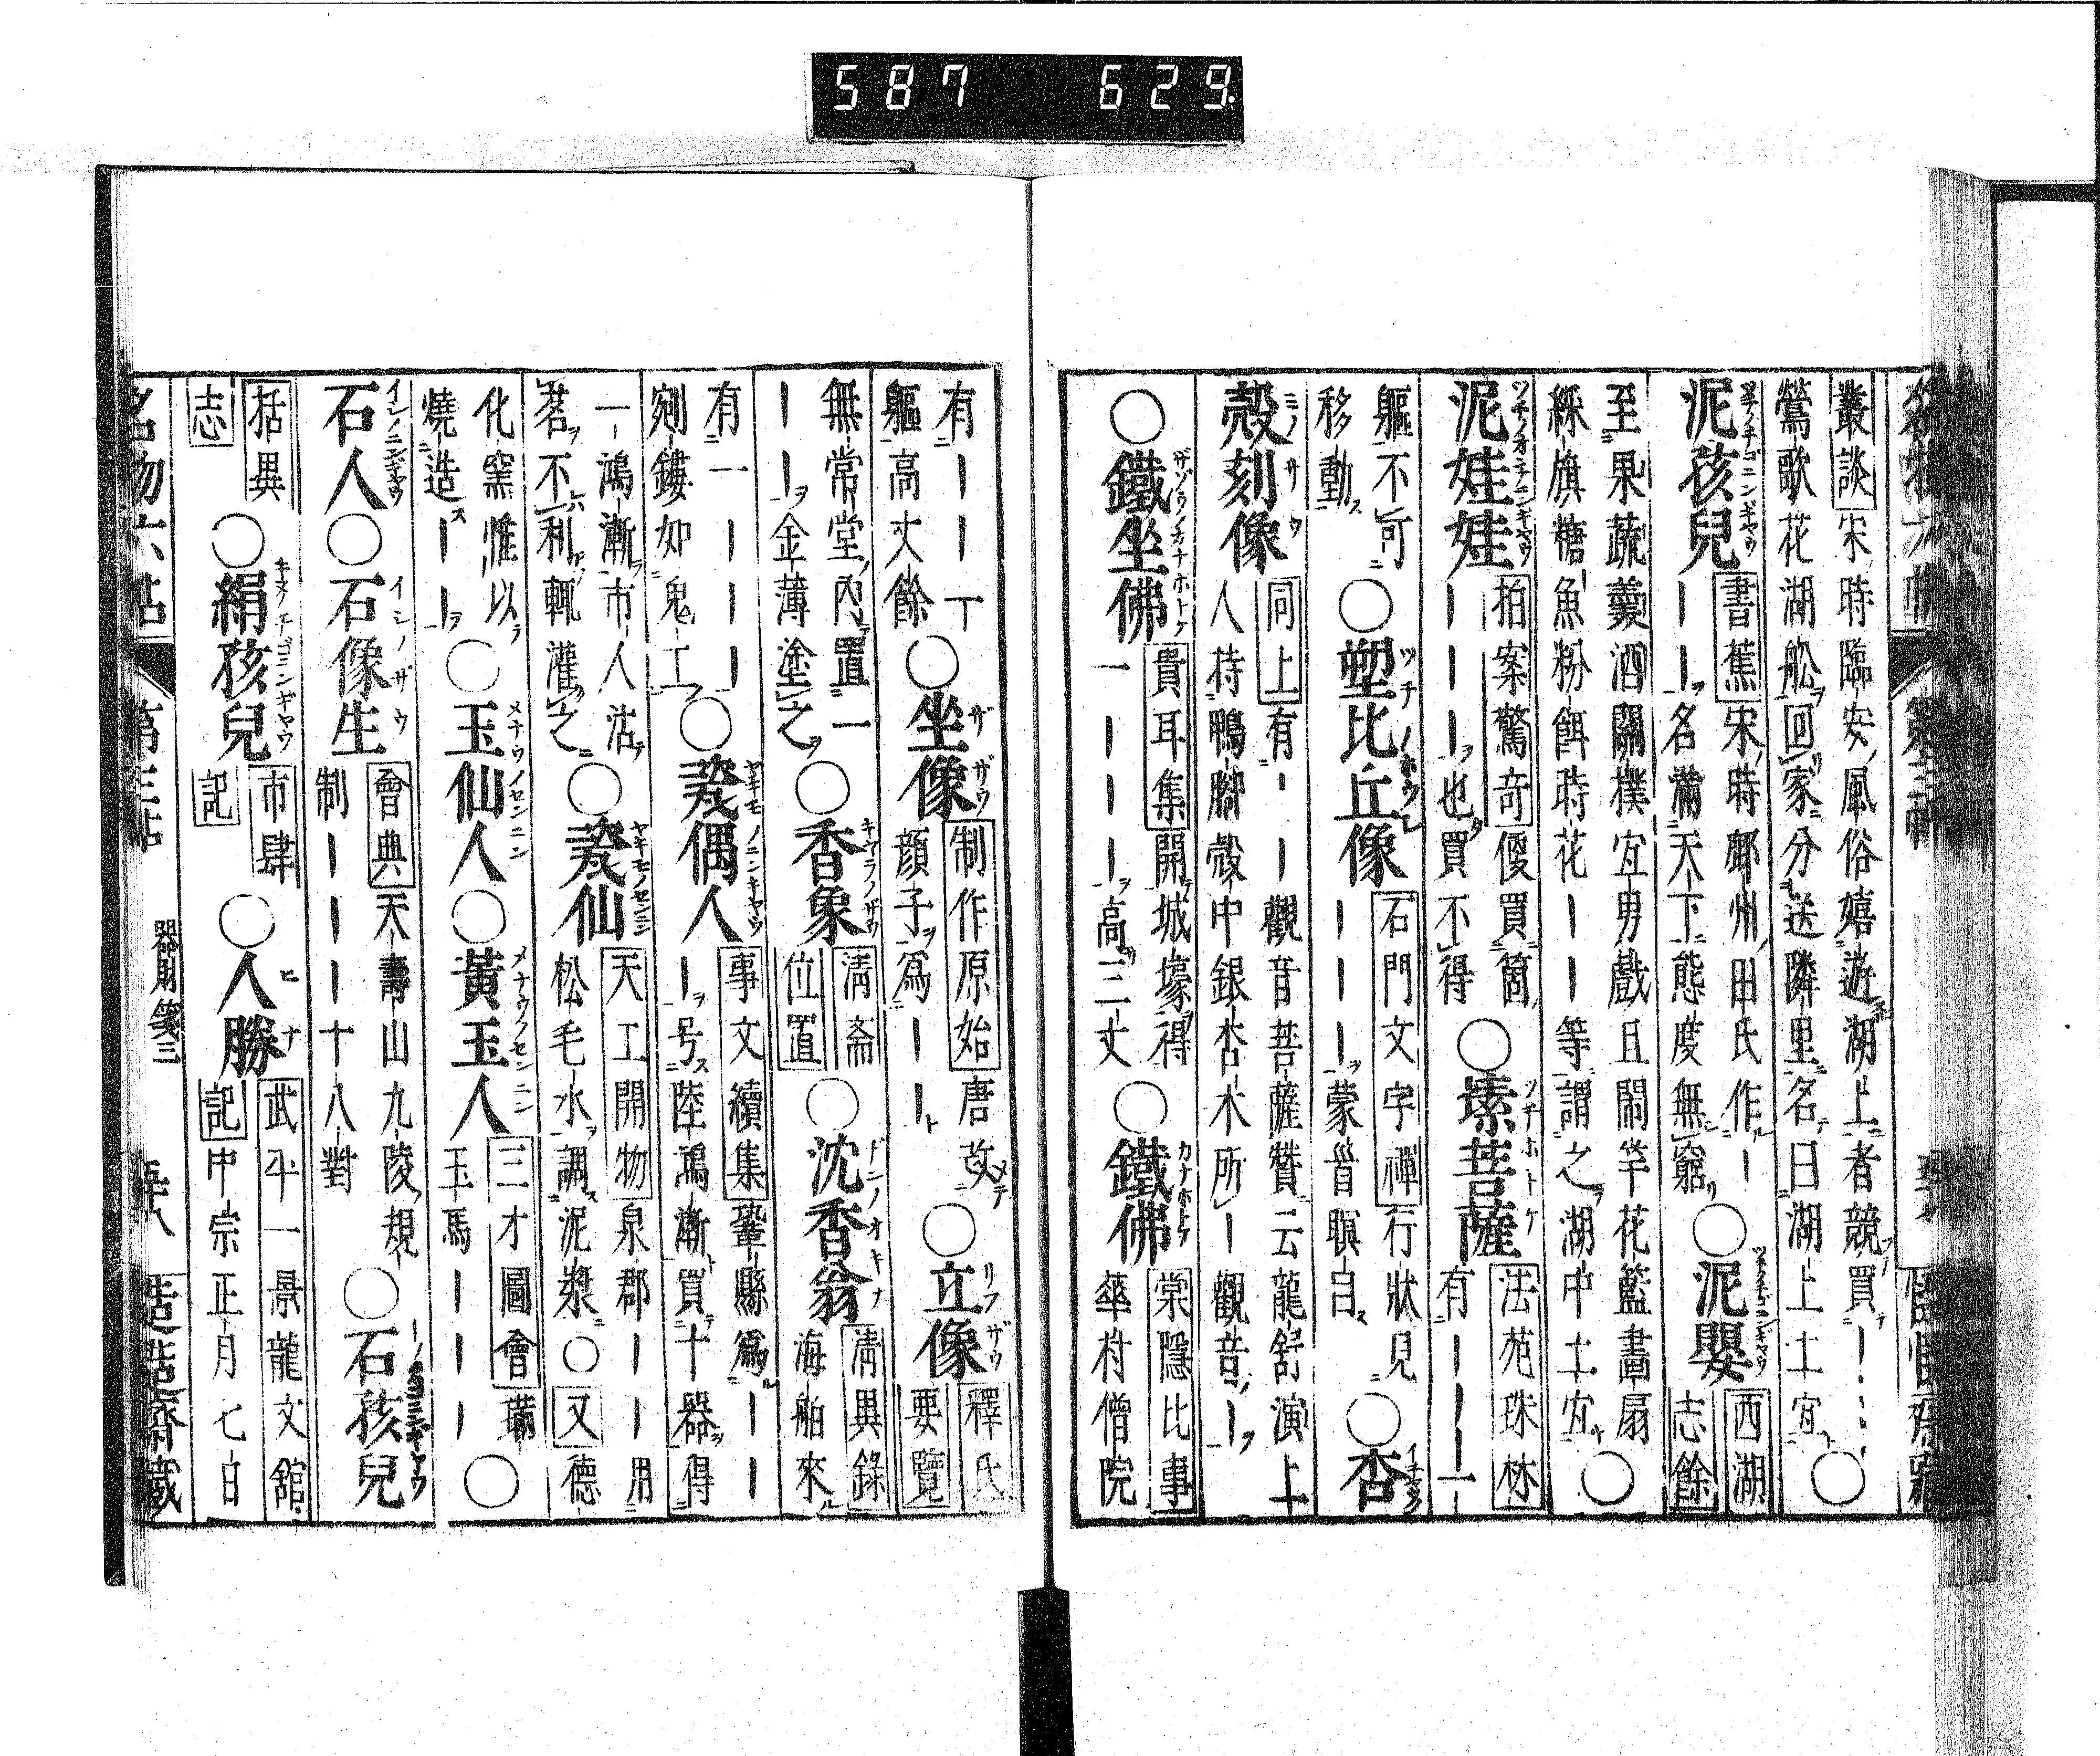 587 629.
叢談 宋時臨安風俗嬉遊湖上者競買︱︱︱
鶯歌花湖舩回家分送隣里名曰湖上土宜○
泥孩兒 書蕉 宋時鄜州田氏作︱
︱︱名滿天下態度無窮 ○泥嬰 西湖志餘
至果蔬羹酒關撲宜男戲且鬧竿花籃畵扇
綵旗糖魚粉餌時花︱︱等謂之湖中土宜○
泥娃娃 拍案驚奇 傻買箇
︱︱︱也買不得 ○塐菩薩 法苑珠林 有︱︱︱一
軀不可移動 ○塑比丘像 石門文字禪 行狀見
︱︱︱蒙㫺瞑目 ○杏
殻刻像 同上 有︱︱觀音菩薩贊云龍舒演上
人持鴨脚殻中銀杏木所︱觀音︱
○鐵坐佛 貴耳集 開城壕得
一︱︱︱高三丈 ○鐵佛 棠隱比事 華村僧院
有︱︱一軀高丈餘 ○坐像 制作原始 唐改
顔子爲︱︱ ○立像 釋氏要覽
無常堂内置一
︱︱金薄塗之 ○香象 清齋位置 ○沈香翁 清異錄 海舶來
有一︱︱︱
剜鏤如鬼工 ○瓷偶人 事文續集 鞏縣爲︱︱
︱号陸鴻漸買十器得
一鴻漸市人沽
茗不利輒灌之 ○瓷仙 天工開物 泉郡︱︱用
松毛水調泥漿○又德
化窯惟以
燒造︱︱ ○玉仙人 ○黃玉人 三才圖會
玉馬︱︱︱ ○
石人 ○石像生 會典 天壽山九陵規
制︱︱︱十八對 ○石孩兒
括異志 ○絹孩兒 市肆記 ○人勝 武平一景龍文舘記 中宗正月七日
名物六帖 第三帖 器財箋三